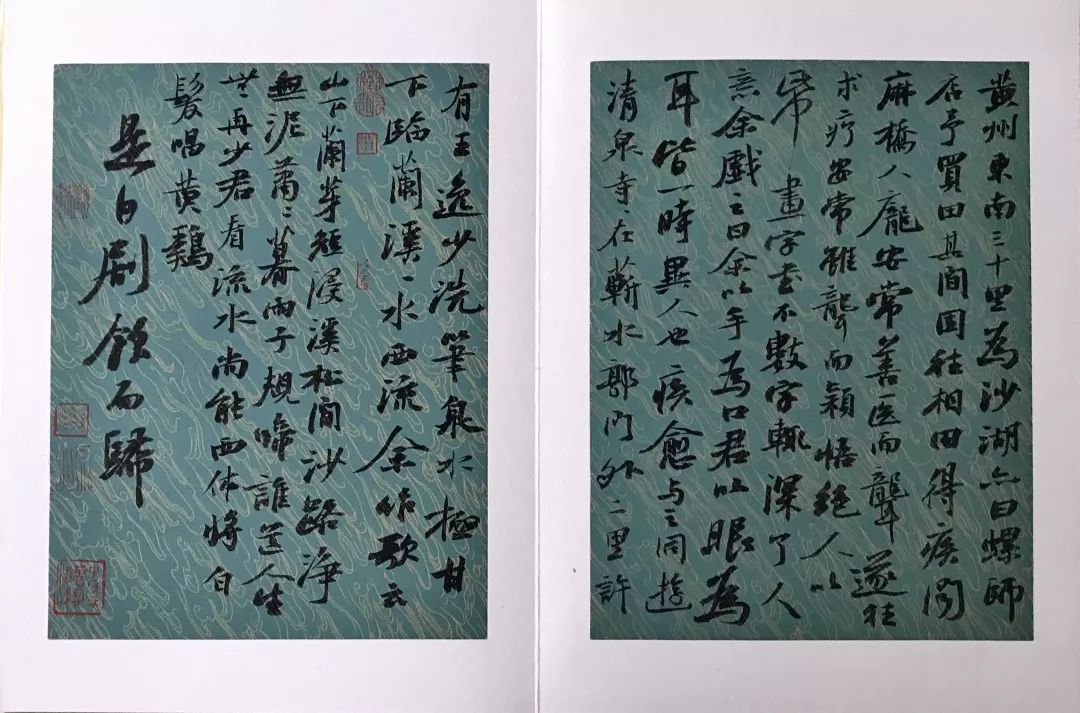 黄州東南三十里為沙湖亦曰螺師
店予買田其間因往相田得疾聞
麻橋人龐安常善医而聾遂往
求疗安常雖聾而穎悟絕人以
帋畫字書不數字輒深了人
意余戲之曰余以手為口君以眼為
耳皆一時異人也疾愈与之同遊
清泉寺〻在蘄水郭門外二里許
有王逸少洗筆泉水極甘
下臨蘭溪〻水西流余作歌云
山下蘭芽短浸溪松間沙路淨
無泥蕭〻暮雨子規啼誰道人生
無再少君看流水尚能西休將白
髮唱黄鷄
是日劇飲而歸